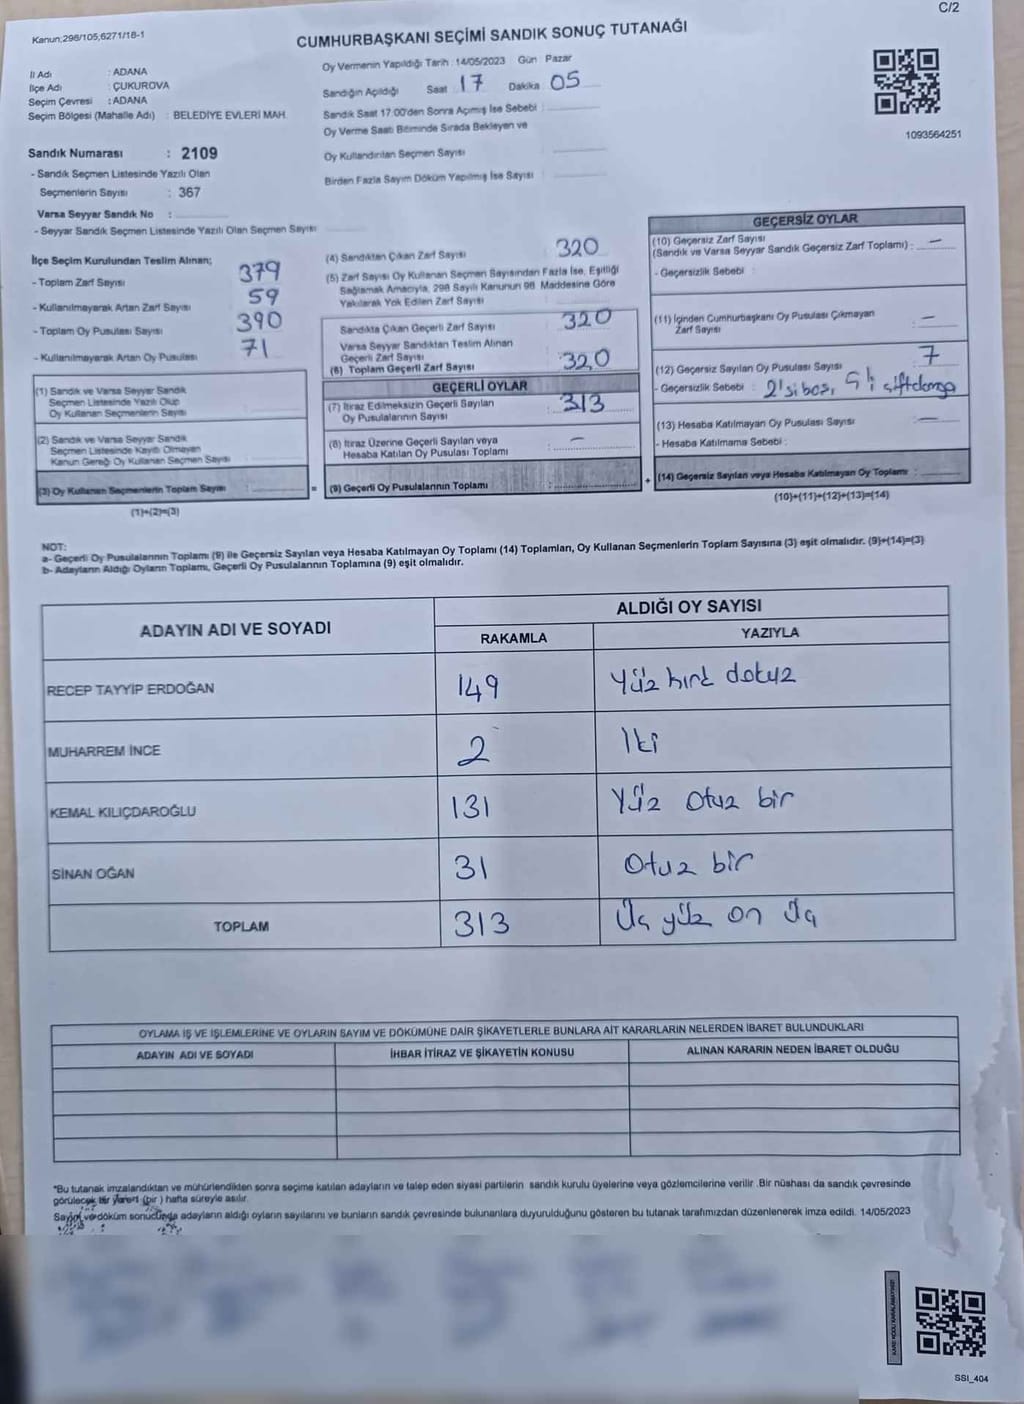 C/2
Kanun:298/105;6271/18-1
CUMHURBAŞKANI SEÇİMİ SANDIK SONUÇ TUTANAĞI
İl Adı : ADANA
İlçe Adı : ÇUKUROVA
Seçim Çevresi : ADANA
Seçim Bölgesi (Mahalle Adı) : BELEDİYE EVLERİ MAH.
Sandık Numarası : 2109
- Sandık Seçmen Listesinde Yazılı Olan
Seçmenlerin Sayısı : 367
Varsa Seyyar Sandık No :
- Seyyar Sandık Seçmen Listesinde Yazılı Olan Seçmen Sayısı
Oy Vermenin Yapıldığı Tarih : 14/05/2023 Gün : Pazar
Sandığın Açıldığı Saat 17 Dakika 05
Sandık Saat 17.00'den Sonra Açımış İse Sebebi :
Oy Verme Saati Bitiminde Sırada Bekleyen ve
Oy Kullandırılan Seçmen Sayısı
Birden Fazla Sayım Döküm Yapılmış İse Sayısı :
1093564251
İlçe Seçim Kurulundan Teslim Alınan;
- Toplam Zarf Sayısı 379
- Kullanılmayarak Artan Zarf Sayısı 59
- Toplam Oy Pusulası Sayısı 390
- Kullanılmayarak Artan Oy Pusulası 71
(1) Sandık ve Varsa Seyyar Sandık
Seçmen Listesinde Yazılı Olup
Oy Kullanan Seçmenlerin Sayısı
(2) Sandık ve Varsa Seyyar Sandık
Seçmen Listesinde Kayıtlı Olmayan
Kanun Gereği Oy Kullanan Seçmen Sayısı
(3) Oy Kullanan Seçmenlerin Toplam Sayısı :
(1)+(2)=(3)
(4) Sandıktan Çıkan Zarf Sayısı 320
(5) Zarf Sayısı Oy Kullanan Seçmen Sayısından Fazla İse, Eşitliği
Sağlamak Amacıyla, 298 Sayılı Kanunun 98. Maddesine Göre
Yakılarak Yok Edilen Zarf Sayısı
Sandıkta Çıkan Geçerli Zarf Sayısı 320
Varsa Seyyar Sandıktan Teslim Alınan
Geçerli Zarf Sayısı
(6) Toplam Geçerli Zarf Sayısı 320
GEÇERLİ OYLAR
(7) İtiraz Edilmeksizin Geçerli Sayılan
Oy Pusulalarının Sayısı : 313
(8) İtiraz Üzerine Geçerli Sayılan veya
Hesaba Katılan Oy Pusulası Toplamı : –
= (9) Geçerli Oy Pusulalarının Toplamı :
GEÇERSİZ OYLAR
(10) Geçersiz Zarf Sayısı
(Sandık ve Varsa Seyyar Sandık Geçersiz Zarf Toplamı) : –
- Geçersizlik Sebebi :
(11) İçinden Cumhurbaşkanı Oy Pusulası Çıkmayan
Zarf Sayısı : –
(12) Geçersiz Sayılan Oy Pusulası Sayısı : 7
- Geçersizlik Sebebi : 2'si boş,
(13) Hesaba Katılmayan Oy Pusulası Sayısı : –
- Hesaba Katılmama Sebebi :
+ (14) Geçersiz Sayılan veya Hesaba Katılmayan Oy Toplamı :
(10)+(11)+(12)+(13)=(14)
NOT:
a- Geçerli Oy Pusulalarının Toplamı (9) ile Geçersiz Sayılan veya Hesaba Katılmayan Oy Toplamı (14) Toplamları, Oy Kullanan Seçmenlerin Toplam Sayısına (3) eşit olmalıdır. (9)+(14)=(3)
b- Adayların Aldığı Oyların Toplamı, Geçerli Oy Pusulalarının Toplamına (9) eşit olmalıdır.
ADAYIN ADI VE SOYADI
ALDIĞI OY SAYISI
RAKAMLA YAZIYLA
RECEP TAYYİP ERDOĞAN 149 Yüz kırk dokuz
MUHARREM İNCE 2 İki
KEMAL KILIÇDAROĞLU 131 Yüz otuz bir
SİNAN OĞAN 31 Otuz bir
TOPLAM 313 Üç yüz on üç
OYLAMA İŞ VE İŞLEMLERİNE VE OYLARIN SAYIM VE DÖKÜMÜNE DAİR ŞİKAYETLERLE BUNLARA AİT KARARLARIN NELERDEN İBARET BULUNDUKLARI
ADAYIN ADI VE SOYADI İHBAR İTİRAZ VE ŞİKAYETİN KONUSU ALINAN KARARIN NEDEN İBARET OLDUĞU
*Bu tutanak imzalandıktan ve mühürlendikten sonra seçime katılan adayların ve talep eden siyasi partilerin sandık kurulu üyelerine veya gözlemcilerine verilir .Bir nüshası da sandık çevresinde
görülecek bir yere1 (bir ) hafta süreyle asılır.
Sayım vedöküm sonucunda adayların aldığı oyların sayılarını ve bunların sandık çevresinde bulunanlara duyurulduğunu gösteren bu tutanak tarafımızdan düzenlenerek imza edildi. 14/05/2023
SSI_404